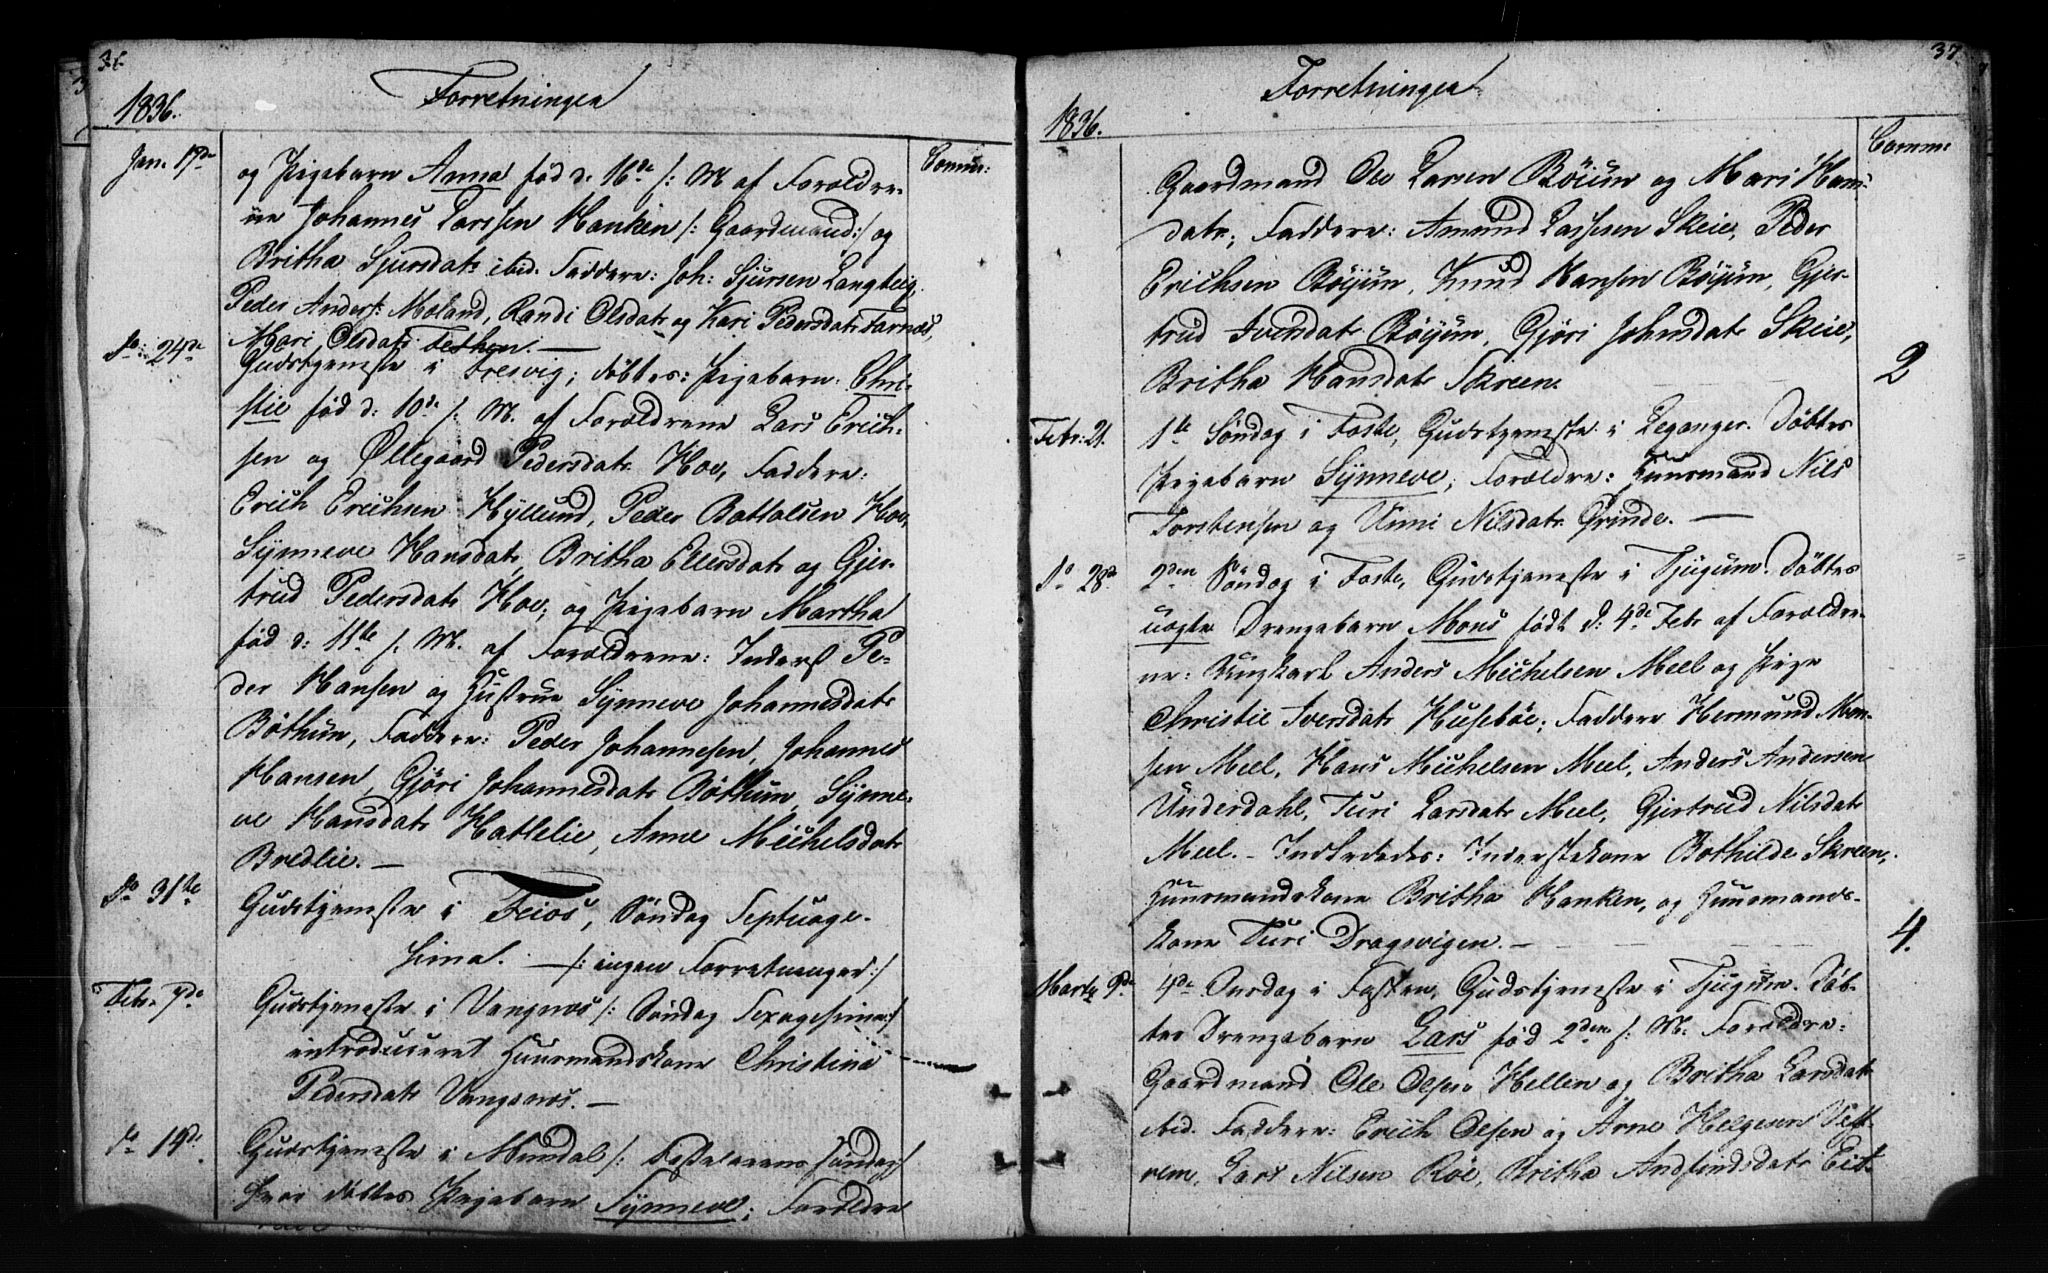 36
1836.
Forretninger
Commu:
Jan. 17de
og Pigebarn Anna fød d. 16de /: M af Foræld-
rene Johannes Larssen Hanken /: Gaardmand :/ og
Britha Sjursdatr ibid. Faddere: Joh: Sjursen Langteig,
Peder Anders: Moland, Randi Olsdatr og Kari Pedersdatr Farnæs,
Mari Olsdatr Fethen. —
Do: 24de
Gudstjeneste i Fresvig; døbtes: Pigebarn Chri-
stie fød d: 10de /: M. af Forældrene Lars Erich-
sen og Øllegaard Pedersdatr Hov, Faddere:
Erich Erichsen Hÿllund, Peder Bottolsen Hov,
Sÿnneve Hansdatr, Britha Ellersdatr og Gjer-
trud Pedersdatr Hov; og Pigebarn Martha
fød d: 11te /: M. af Forældrene: Inderst Pe-
der Hansen og Hustrue Sÿnneve Johannesdatr
Bøthun, Faddere: Peder Johannesen, Johannes
Hansen, Gjøri Johannesdatr Bøthun, Sÿnne-
ve Hansdatr Hatlelie, Anne Michelsdatr
Bredlie. —
Do 31te
Gudstjeneste i Feios, Søndag Septuage-
sima. — /: ingen Forretninger :/
Febr. 7de
Gudstjeneste i Vangnæs /: Søndag Sexagesima :/
introduceret Huusmandskone Christina
Pedersdatr Vangsnæs. —
Do 14de
Gudstjeneste i Mundal /: Fastelavens Søndag :/
hvor døbtes Pigebarn Sÿnneve; Forældre
37
1836.
Forretninger
Comm:
Gaardmand Ole Larsen Bøium og Mari Hans-
datr; Faddere: Amund Lassesen Skeie, Peder
Erichsen Bøÿum, Knud Hansen Bøÿum, Gjer-
trud Iversdatr Bøÿum, Gjøri Johnsdatr Skeie,
Britha Hansdatr Skreen.
2
Febr: 21.
1te Søndag i Faste, Gudstjeneste i Leganger. Døbtes
Pigebarn Sÿnneve, Forældre: Huusmand Nils
Torstensen og Unni Nilsdatr Grinde. —
Do 28de
2den Søndag i Faste, Gudstjeneste i Tjugum. Døbtes
uægte Drengebarn Mons født d: 4de Febr af Forældre-
ne: Ungkarl Anders Michelsen Meel og Pige
Christie Iversdatr Husebøe; Faddere Hermund Mon-
sen Meel, Hans Michelsen Meel, Anders Andersen
Underdahl, Turi Larsdatr Meel, Gjertrud Nilsdatr
Meel. — Indledede: Inderstekone Bothilde Skreen,
Huusmandskone Britha Hanken, og Huusmands-
kone Turi Dragsvigen. —
4.
Marty 9de
4de Onsdag i Fasten, Gudstjeneste i Tjugum. Døb-
tes Drengebarn Lars fød 2den /: M. Forældre:
Gaardmand Ole Olsen Hellen og Britha Larsdatr
ibid. Faddere: Erich Olsen og Arne Helgesen Vett-
rem, Lars Nilsen Røe, Britha Andfindsdatr Eit-